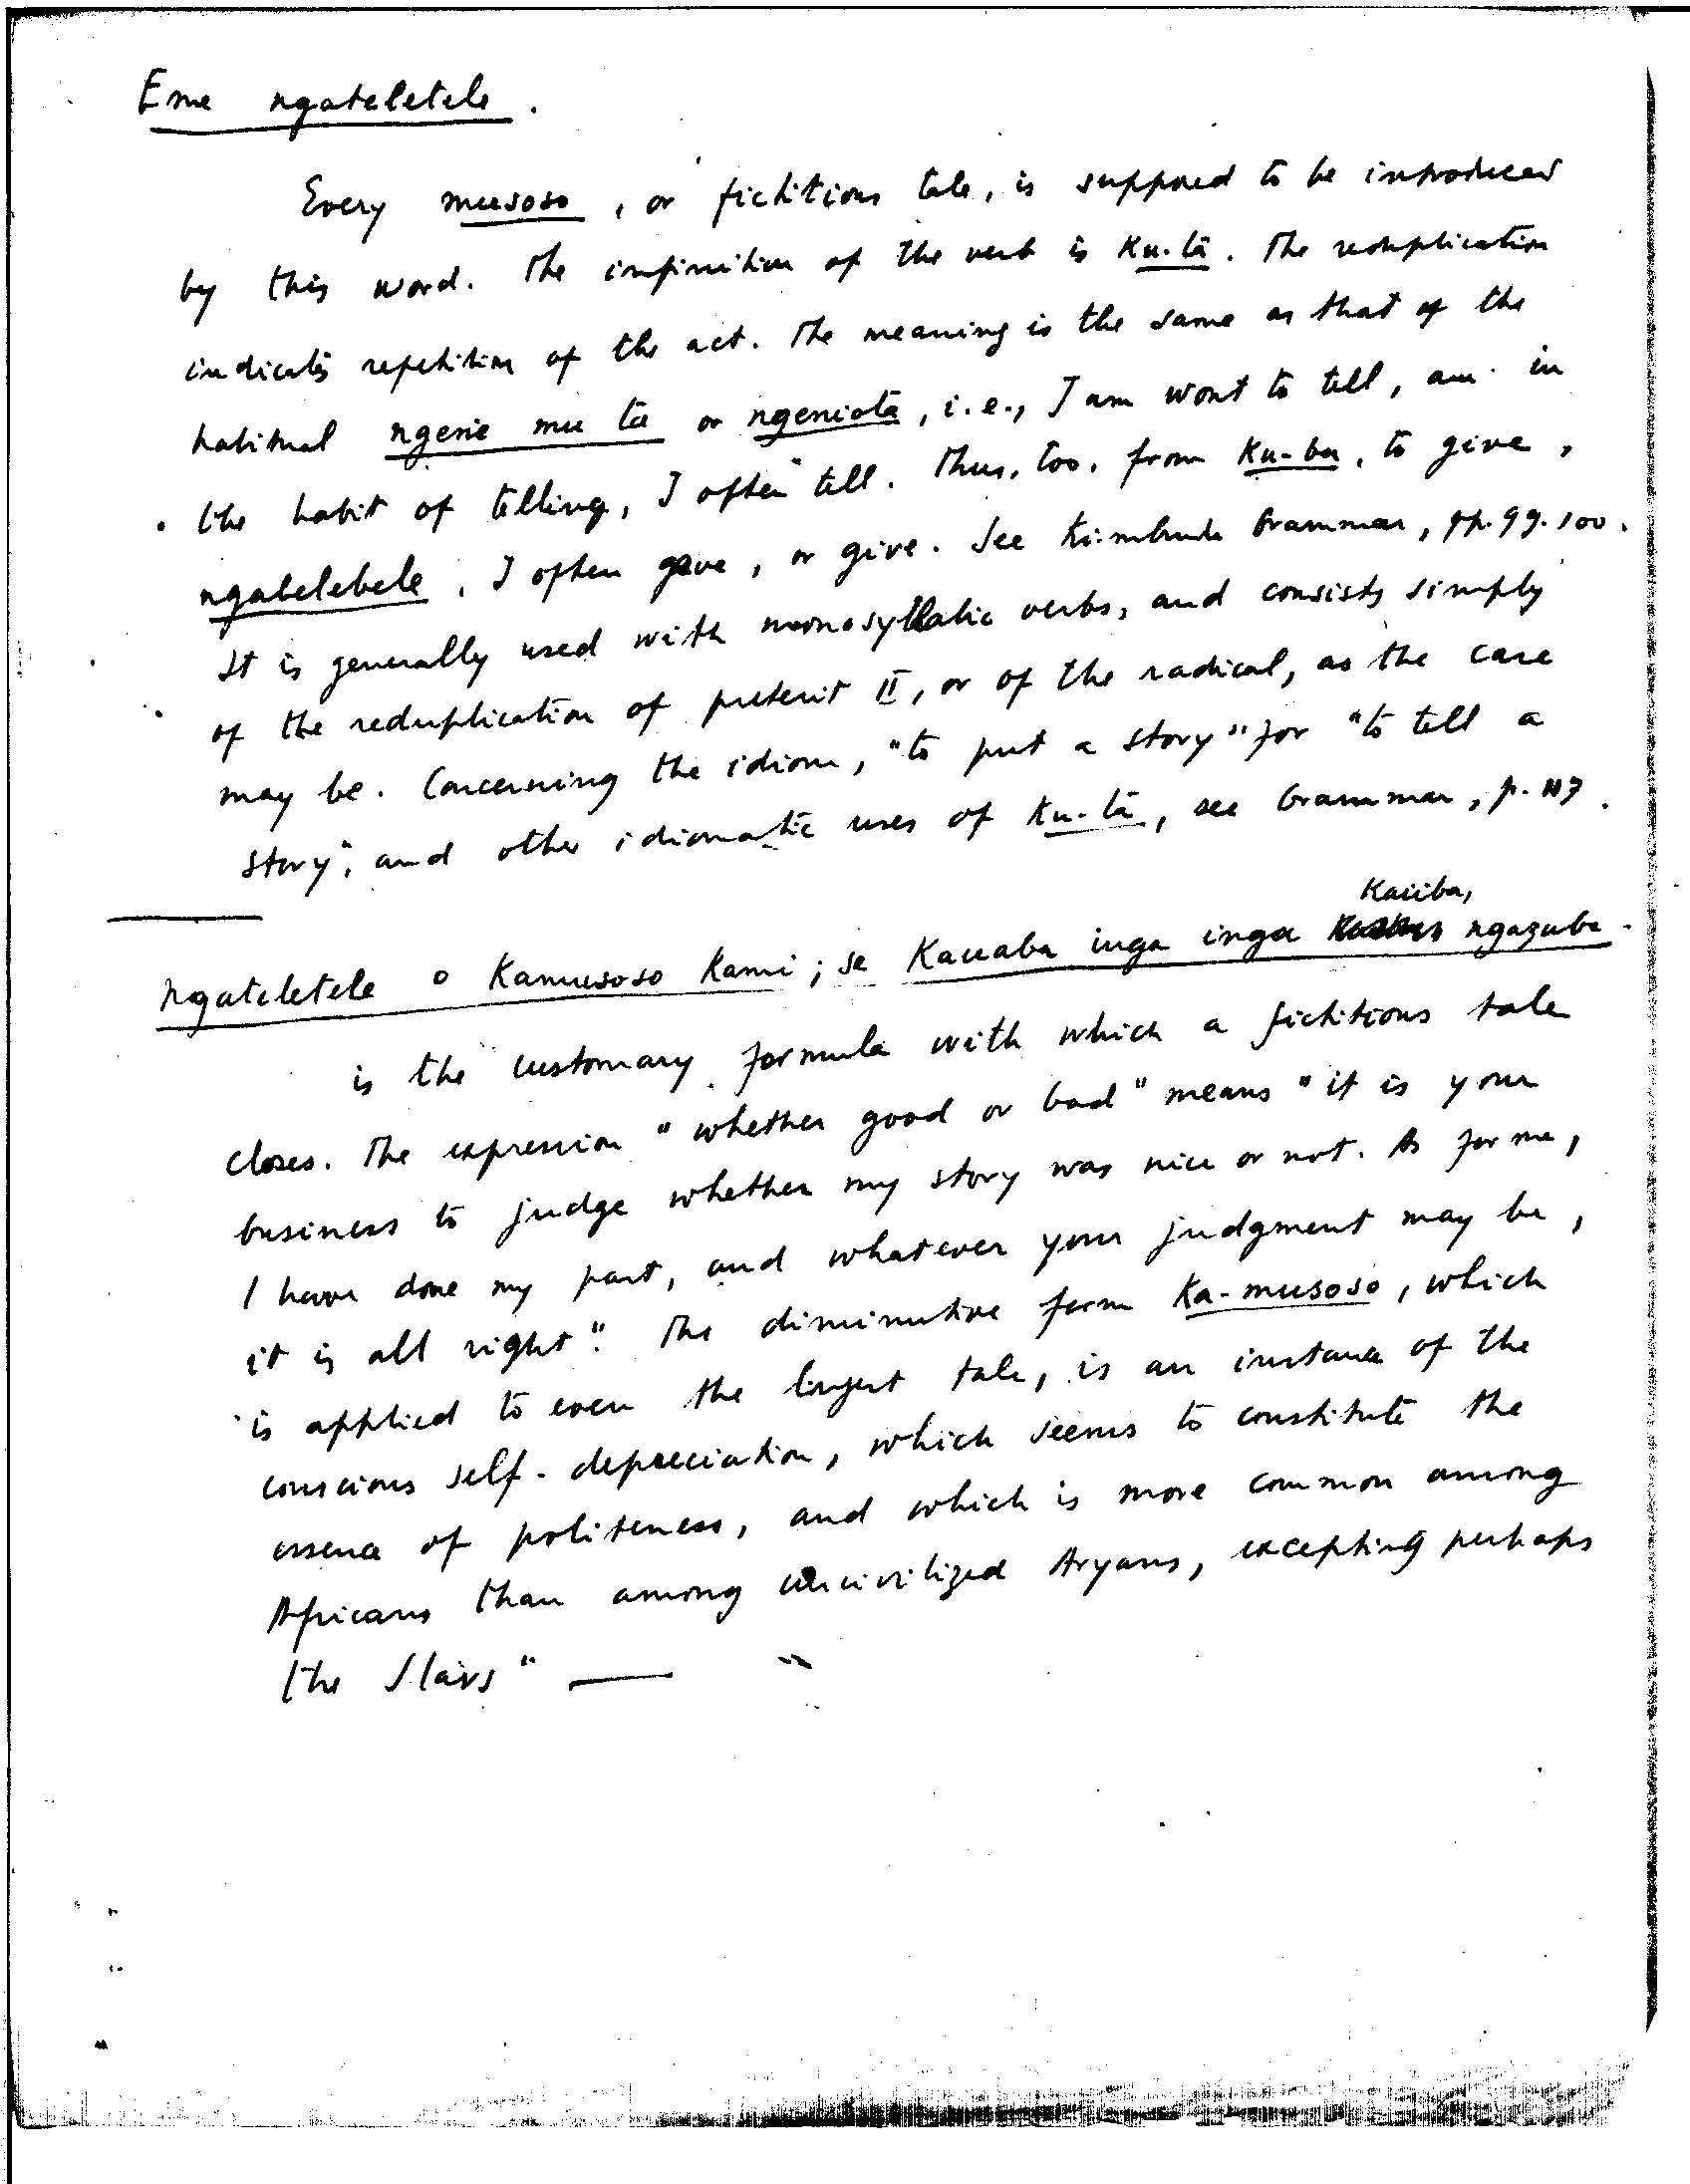 Eme ngateletele.
Every musoso, or fictitious tale, is supposed to be introduced
by this word. The infinitive of the verb is Ku-tà. The reduplication
indicates repetition of the act. The meaning is the same as that of the
habitual ngene mu ta or ngeniota, i.e., I am wont to tell, am in
the habit of telling, I often tell. Thus, too, from Ku-ba, to give,
ngabelebele, I often gave, or give. See Kimbundu Grammar, pp. 99-100.
It is generally used with monosyllabic verbs, and consists simply
of the reduplication of preterit II, or of the radical, as the case
may be. Concerning the idiom, "to put a story" for "to tell a
story", and other idiomatic uses of Ku-tà, see Grammar, p. 117.
Kaiiba,
Ngateletele o Kamusoso Kami; se Kauaba inga inga ngazuba.
is the customary formula with which a fictitious tale
closes. The expression "whether good or bad" means "it is your
business to judge whether my story was nice or not. As for me,
I have done my part, and whatever your judgment may be,
it is all right". The diminutive form Ka-musoso, which
is applied to even the longest tale, is an instance of the
conscious self-depreciation, which seems to constitute the
essence of politeness, and which is more common among
Africans than among uncivilized Aryans, excepting perhaps
the Slavs" —